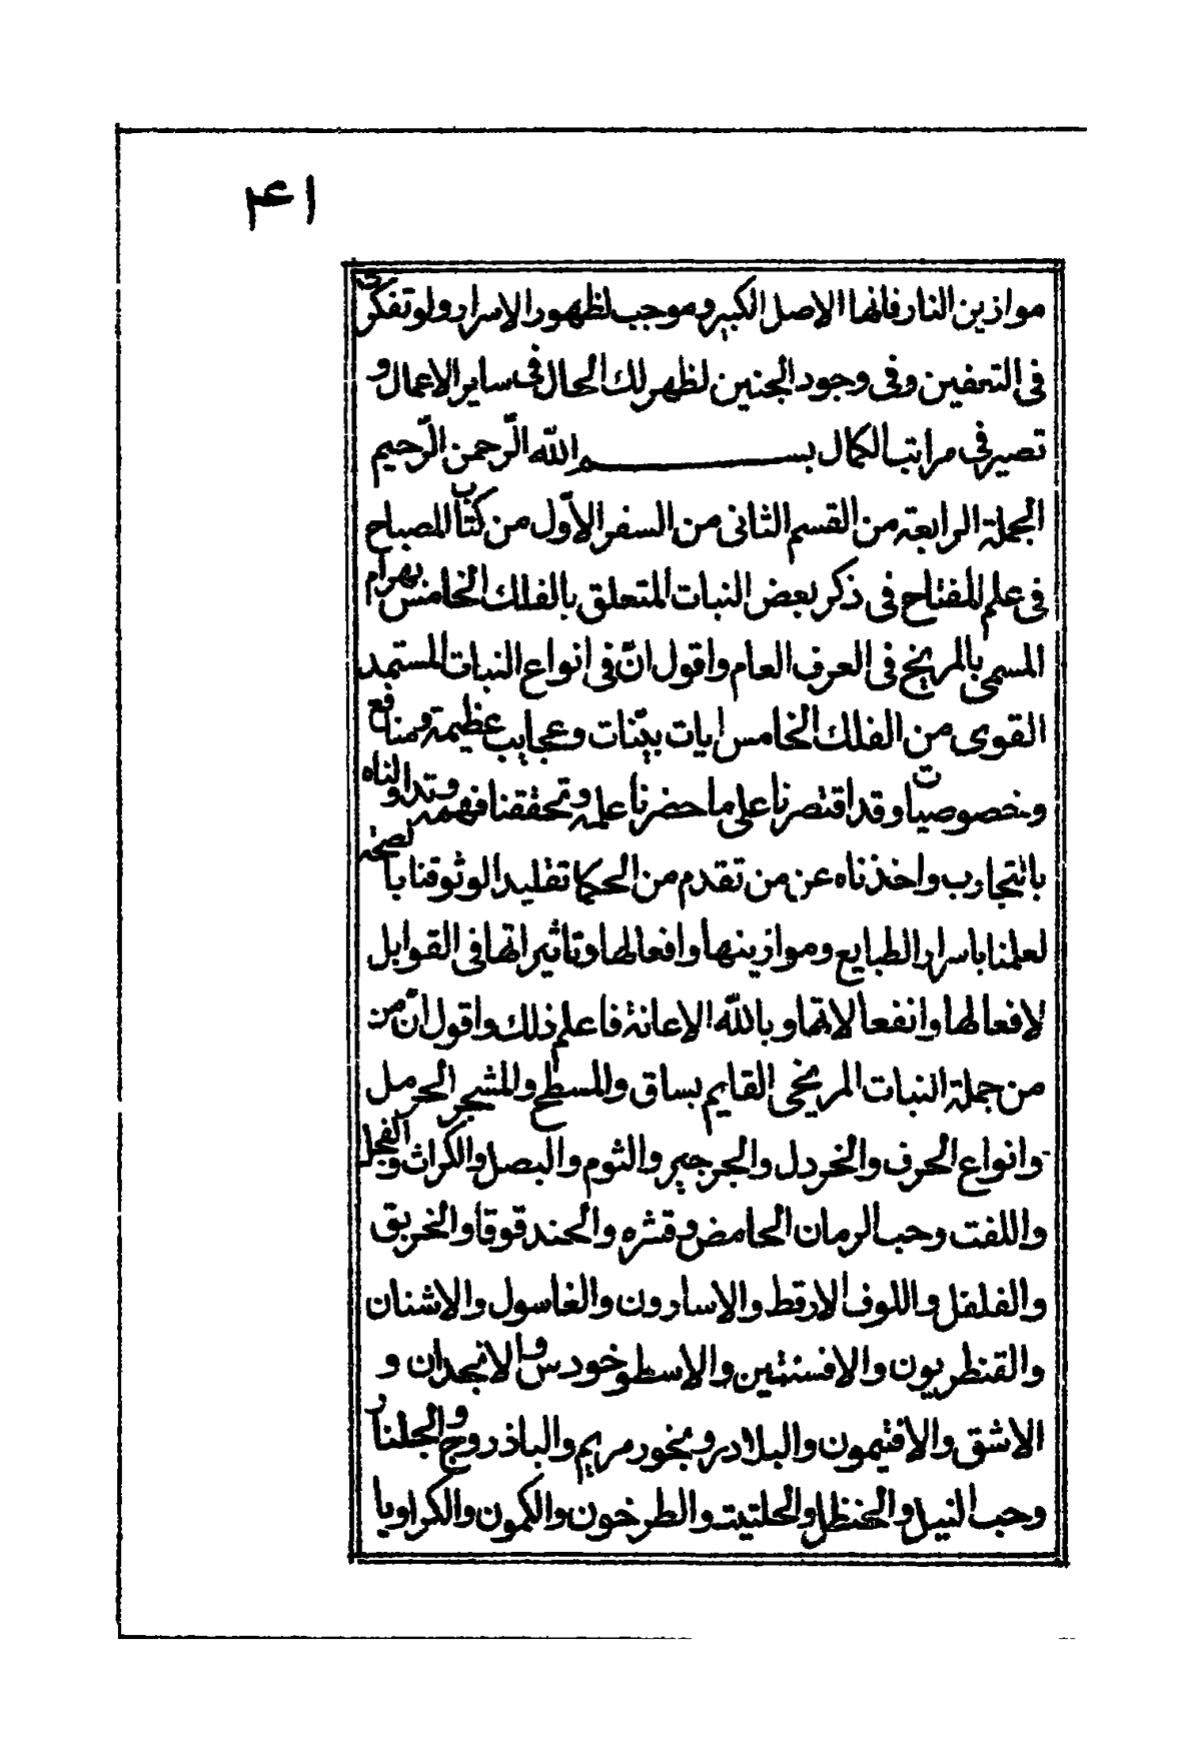 ۴۱
موازين النار فانها الاصل الكبير وموجب لظهور الاسرار ولو تفكرت
فى التعفين وفى وجود الجنين لظهر لك الحال فى ساير الاعمال و
تصير فى مراتب الكمال بسم الله الرّحمن الرّحيم
الجملة الرابعة من القسم الثانى من السفر الاوّل من كتاب المصباح
فى علم المفتاح فى ذكر بعض النبات المتعلق بالفلك الخامس بهرام
المسمى بالمريخ فى العرف العام واقول انّ فى انواع النبات المستمد
القوى من الفلك الخامس ايات بيّنات وعجايب عظيمة ومنافع
وخصوصيات وقد اقتصرنا على ما حضرنا علمه وتحققنا فهمه وتداولناه
بالتجارب واخذناه عن من تقدم من الحكما تقليدا لوثوقنا بالصحة
لعلمنا باسرار الطبايع وموازينها وافعالها وتاثيراتها فى القوابل
لافعالها وانفعالاتها وبالله الاعانة فاعلم ذلك واقول انّ من
من جملة النبات المريخى القايم بساق والمسطح والمشجر الحرمل
وانواع الحرف والخردل والجرجير والثوم والبصل والكراث والفجل
واللفت وحب الرمان الحامض وقشره والحندقوقا والخربق
والفلفل واللوف الارقط والاسارون والغاسول والاشنان
والقنطريون والافسنتين والاسطوخودس والانجدان و
الاشق والافتيمون والبلادر وبخور مريم والباذروج والجلنار
وحب النيل والحنظل والحلتيت والطرخون والكمون والكراويا